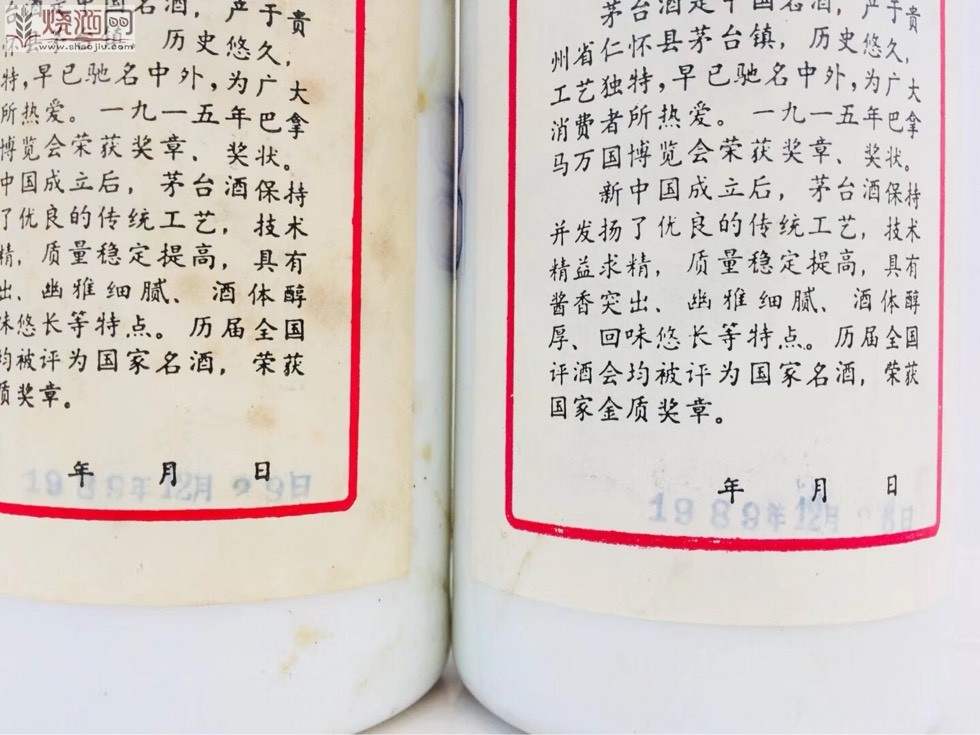 烧酒网
www.shaojiu.com
中国名酒，产于贵
怀县茅台镇，历史悠久，
特，早已驰名中外，为广大
所热爱。一九一五年巴拿
博览会荣获奖章、奖状。
中国成立后，茅台酒保持
了优良的传统工艺，技术
精，质量稳定提高，具有
出、幽雅细腻、酒体醇
味悠长等特点。历届全国
均被评为国家名酒，荣获
质奖章。
年 月 日
1989年12月29日
茅台酒是中国名酒，产于贵
州省仁怀县茅台镇，历史悠久，
工艺独特，早已驰名中外，为广大
消费者所热爱。一九一五年巴拿
马万国博览会荣获奖章、奖状。
新中国成立后，茅台酒保持
并发扬了优良的传统工艺，技术
精益求精，质量稳定提高，具有
酱香突出、幽雅细腻、酒体醇
厚、回味悠长等特点。历届全国
评酒会均被评为国家名酒，荣获
国家金质奖章。
年 月 日
1989年12月 8日